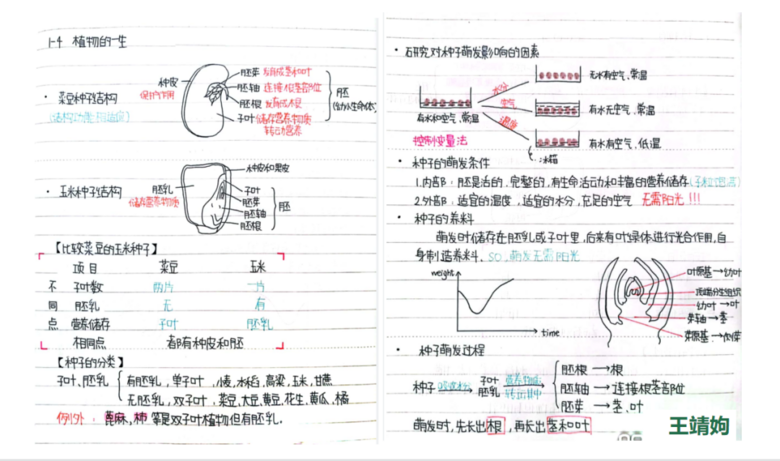 1-4 植物的一生
种皮
保护作用
胚芽 发育成茎和叶
胚轴 连接根茎部位
胚根 发育成根
子叶 储存营养物质
转运营养
胚
(幼小生命体)
· 菜豆种子结构
(结构功能相适应)
种皮和果皮
· 玉米种子结构
胚乳
储存营养物质
子叶
胚芽
胚轴
胚根
胚
【比较菜豆的玉米种子】
项目 菜豆 玉米
不 子叶数 两片 一片
同 胚乳 无 有
点 营养储存 子叶 胚乳
相同点 都有种皮和胚
【种子的分类】
子叶、胚乳
有胚乳,单子叶,小麦,水稻,高粱,玉米,甘蔗
无胚乳,双子叶,菜豆,大豆,黄豆,花生,黄瓜,橘
例外:蓖麻,柿等是双子叶植物但有胚乳.
· 研究对种子萌发影响的因素
有水和空气,常温
水分
空气
温度
无水有空气,常温
有水无空气,常温
有水有空气,低温
冰箱
控制变量法
· 种子的萌发条件
1.内部:胚是活的,完整的,有生命活动和丰富的营养储存
2.外部:适宜的温度,适宜的水分,充足的空气 无需阳光!!!
· 种子的养料
萌发时储存在胚乳或子叶里,后来有叶绿体进行光合作用,自
身制造养料. so,萌发无需阳光
weight
time
叶原基→幼叶
顶端分生组织
幼叶→叶
芽轴→茎
芽原基→侧芽
· 种子萌发过程
种子 吸收水分 子叶
胚乳
营养物质
转运给胚
胚根→根
胚轴→连接根茎部位
胚芽→茎、叶
萌发时,先长出根,再长出茎和叶
王靖姁